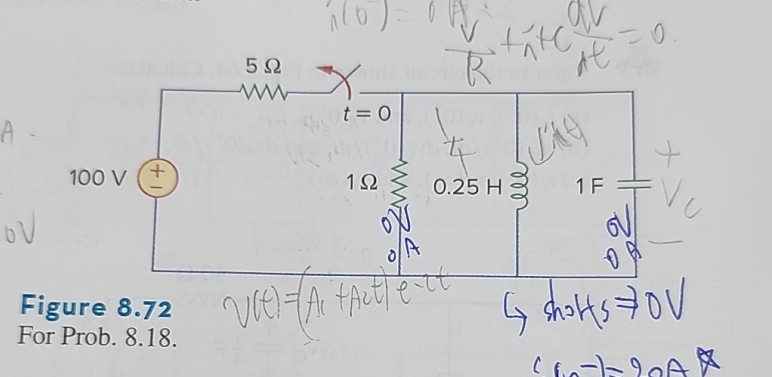 i(0⁻) = 0 A
V/R + i + C dV/dt = 0.
5 Ω
t = 0
A
100 V
+
−
1 Ω
1/4
0.25 H
i(t)
1 F
+
Vc
−
0V
0V
0 A
0V
0 A
v(t) = (A₁ + A₂t) e^-2t
↳ shorts ⇒ 0V
Figure 8.72
For Prob. 8.18.
= 20A